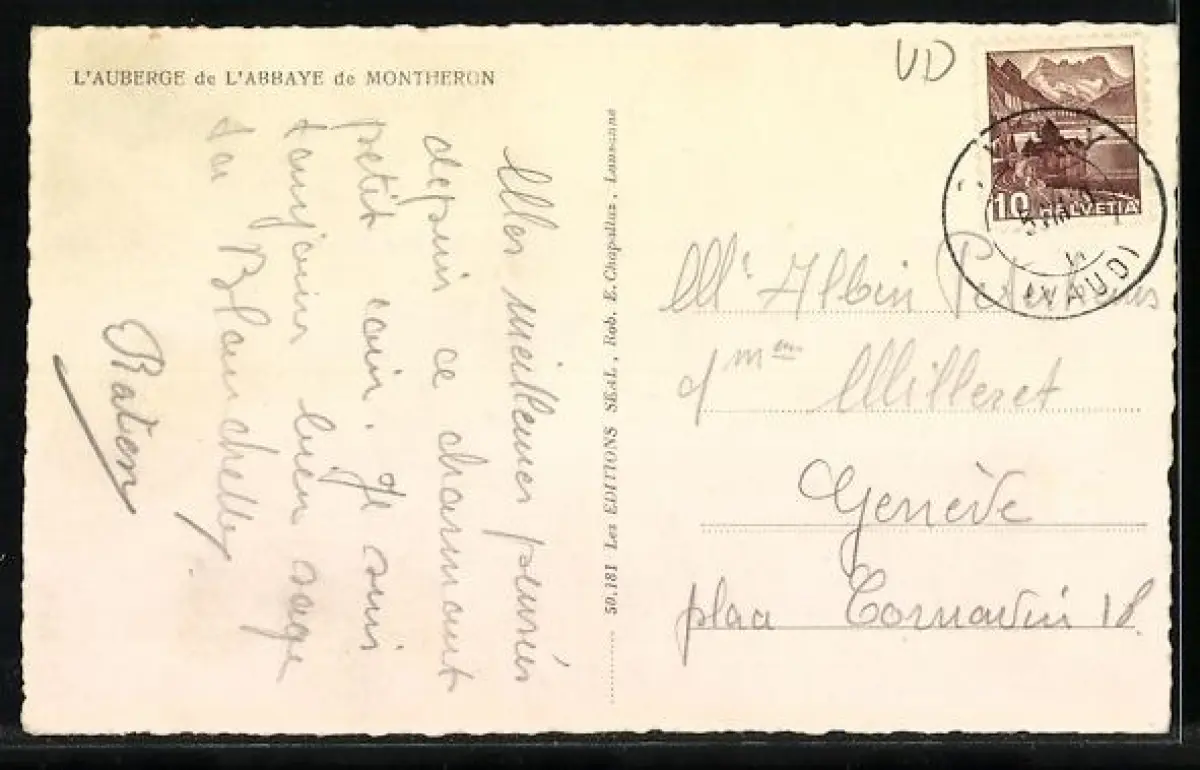 L'AUBERGE de L'ABBAYE de MONTHERON
Mes meilleures pensées
depuis ce charmant
petit coin. Je suis
toujours bien sage
ta Blanchette.
50.181 Les EDITIONS SEAL, Rob. E. Chapallaz, Lausanne
VD
10 HELVETIA
(VAUD)
Mr Albin
Milleret
Genève
place Cornavin 18.